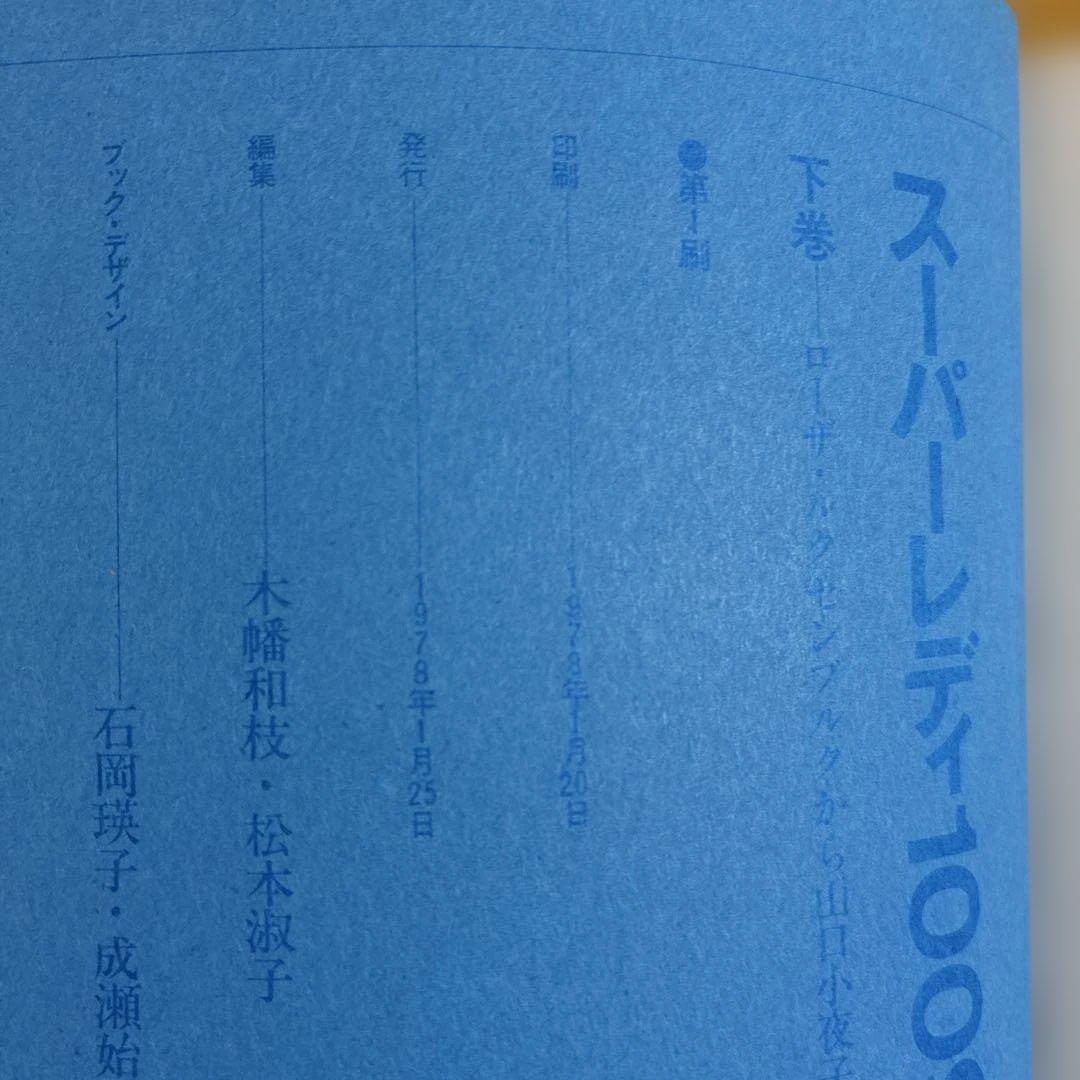 スーパーレディ100
下巻──ローザ・ルクセンブルクから山口小夜子
●第1刷
印刷──1978年1月20日
発行──1978年1月25日
編集──木幡和枝・松本淑子
ブック・デザイン──石岡瑛子・成瀬始